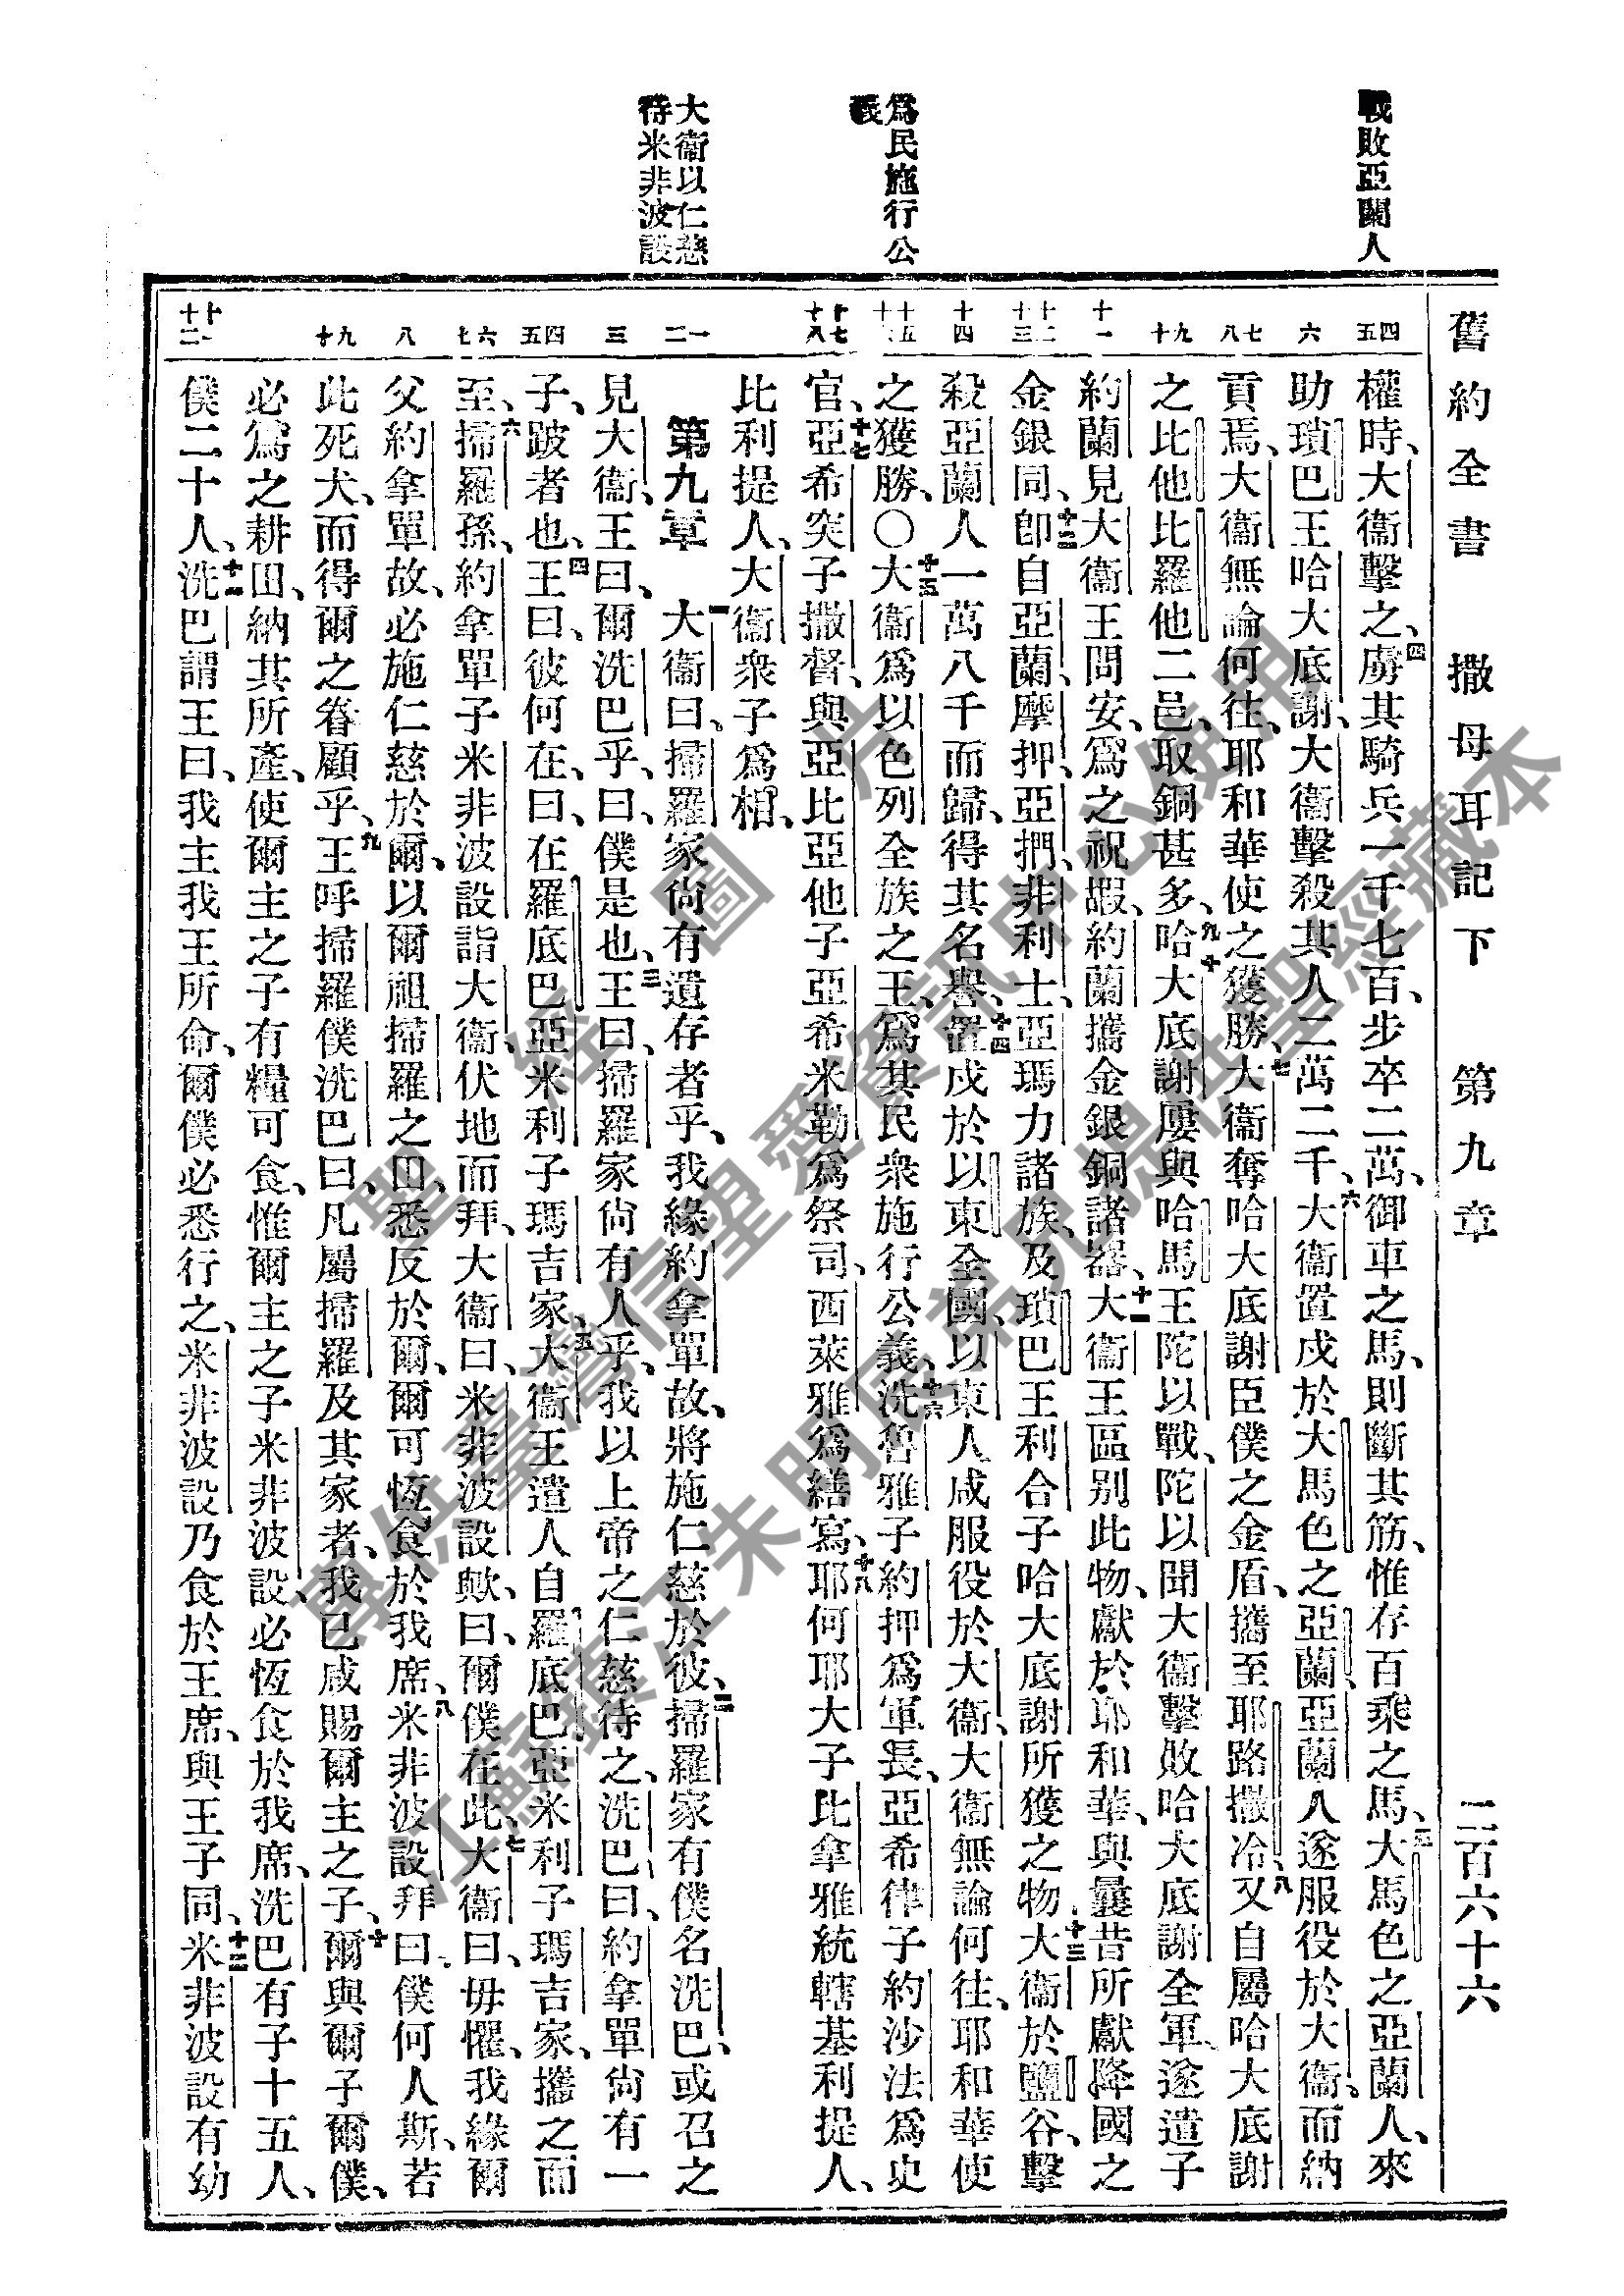 舊約全書　撒母耳記下　第九章　二百六十六
戰敗亞蘭人
爲民施行公
義
大衞以仁慈
待米非波設
四五
六
七八
九十
十一
十二十三
十四
十五
十七十八
一二
三
四五
六七
八
九十
十一十二
權時、大衞擊之、四虜其騎兵一千七百、步卒二萬、御車之馬、則斷其筋、惟存百乘之馬、五大馬色之亞蘭人、來
助瑣巴王哈大底謝、大衞擊殺其人二萬二千、六大衞置戍於大馬色之亞蘭、亞蘭人遂服役於大衞、而納
貢焉、大衞無論何往、耶和華使之獲勝、七大衞奪哈大底謝臣僕之金盾、攜至耶路撒冷、八又自屬哈大底謝
之比他比羅他二邑、取銅甚多、九哈十大底謝屢與哈馬王陀以戰、陀以聞大衞擊敗哈大底謝全軍、遂遣子
約蘭見大衞王問安、爲之祝嘏、約蘭攜金銀銅諸器、十一大衞王區別此物、獻於耶和華、與曩昔所獻降國之
金銀同、十二卽自亞蘭、摩押、亞捫、非利士、亞瑪力諸族、及瑣巴王利合子哈大底謝所獲之物、十三大衞於鹽谷、擊
殺亞蘭人一萬八千而歸、得其名譽、十四置戍於以東全國、以東人咸服役於大衞、大衞無論何往、耶和華使
之獲勝、〇十五大衞爲以色列全族之王、爲其民衆施行公義、十六洗魯雅子約押爲軍長、亞希律子約沙法爲史
官、十七亞希突子撒督、與亞比亞他子亞希米勒爲祭司、西萊雅爲繕寫、十八耶何耶大子比拿雅統轄基利提人、
比利提人、大衞衆子爲相、
第九章　一大衞曰、掃羅家尙有遺存者乎、我緣約拿單故、將施仁慈於彼、二掃羅家有僕名洗巴、或召之
見大衞、王曰、爾洗巴乎、曰、僕是也、三王曰、掃羅家尙有人乎、我以上帝之仁慈待之、洗巴曰、約拿單尙有一
子、跛者也、四王曰、彼何在、曰、在羅底巴亞米利子瑪吉家、五大衞王遣人自羅底巴亞米利子瑪吉家、攜之而
至、六掃羅孫、約拿單子米非波設詣大衞、伏地而拜、大衞曰、米非波設歟、曰、爾僕在此、七大衞曰、毋懼、我緣爾
父約拿單故、必施仁慈於爾、以爾祖掃羅之田、悉反於爾、爾可恆食於我席、八米非波設拜曰、僕何人斯、若
此死犬、而得爾之眷顧乎、九王呼掃羅僕洗巴曰、凡屬掃羅及其家者、我已咸賜爾主之子、十爾與爾子爾僕、
必爲之耕田、納其所產、使爾主之子有糧可食、惟爾主之子米非波設、必恆食於我席、洗巴有子十五人、
僕二十人、十一洗巴謂王曰、我主我王所命、爾僕必悉行之、米非波設乃食於王席、與王子同、十二米非波設有幼
聖經圖片
專供臺灣信望愛資訊中心使用
江蘇鎭江朱明辰弟兄提供聖經藏本